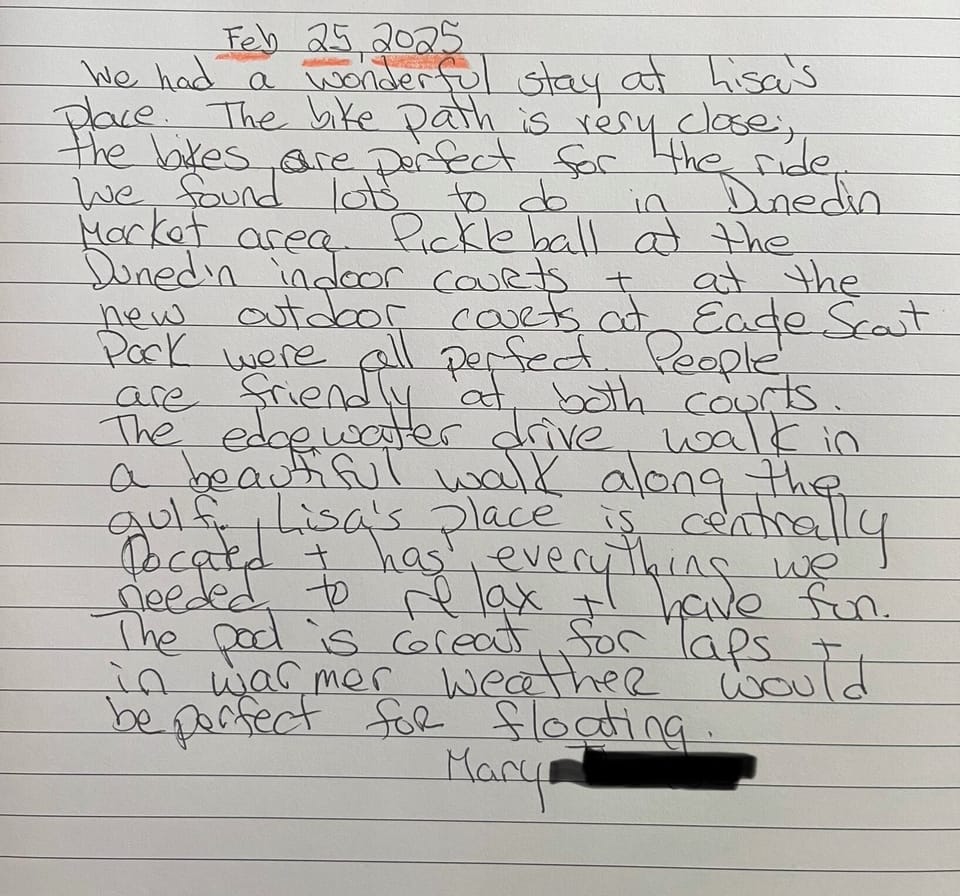 Feb 25, 2025
We had a wonderful stay at Lisa's
place. The bike path is very close;
the bikes are perfect for the ride.
We found lots to do in Dunedin
Market area. Pickleball at the
Dunedin indoor courts + at the
new outdoor courts at Eagle Scout
Park were all perfect. People
are friendly at both courts.
The edgewater drive walk in
a beautiful walk along the
gulf. Lisa's place is centrally
located + has everything we
needed to relax + have fun.
The pool is Great for laps +
in warmer weather would
be perfect for floating.
Mary